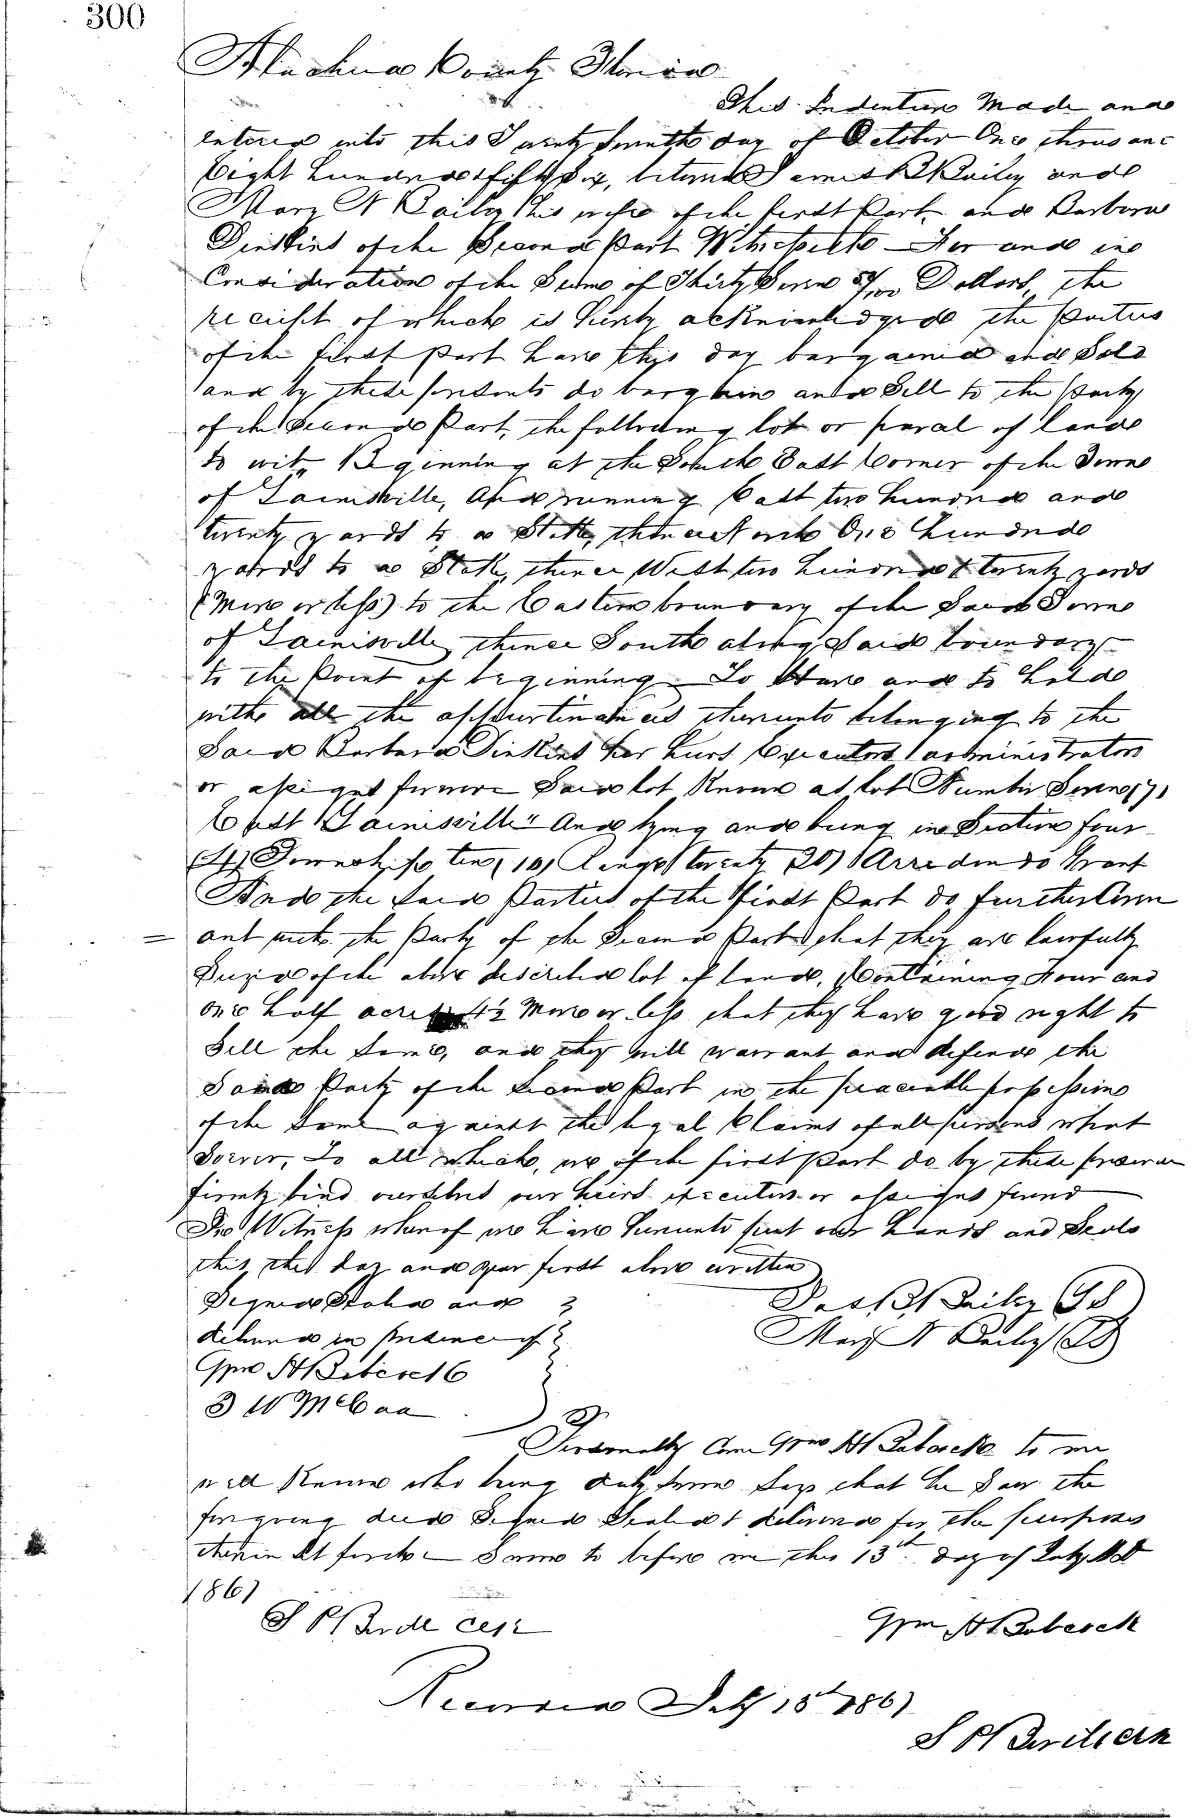 300
Alachua County Florida
This Indenture Made and
entered into this Twenty Seventh day of October One thousand
Eight hundred & fifty Six, between James B Bailey and
Mary N Bailey his wife of the first Part, and Barbara
Dinkins of the Second Part Witnesseth - For and in
Consideration of the Sum of Thirty Seven 50/100 Dollars, the
receipt of which is hereby acknowledged the parties
of the first Part have this day bargained and Sold
and by these presents do bargain and Sell to the party
of the Second Part, the following lot or parcel of land
to wit, Beginning at the South East Corner of the Town
of Gainisville, And running East two hundred and
twenty yards to a Stake, thence North One hundred
yards to a Stake, thence West two hundred & twenty yards
(More or less) to the Eastern boundary of the Said Town
of Gainisville, thence South along Said boundary
to the Point of beginning. To Have and to hold
with all the appurtinances thereunto belonging to the
Said Barbara Dinkins her heirs Executors administrators
or assigns forever Said lot Known as lot Number Seven (7)
East Gainisville" And lying and being in Section four
(4) Township ten (10) Range twenty (20) Arredondo Grant
And the Said Parties of the first Part do further Coven
ant with the Party of the Second Part that they are lawfully
Seized of the above described lot of land, Containing Four and
one half acres 4½ More or less that they have good right to
Sell the Same, and they will warrant and defend the
Said Party of the Second Part in the peaceable possession
of the Same against the legal Claims of all persons what
Soever, To all which, we of the first part do by these presence
firmly bind ourselves our heirs executors or assigns
In Witness whereof we have hereunto put our hands and Seals
this the day and year first above written
Signed Sealed and Jas. B. Bailey LS
delivered in presence of Mary N Bailey LS
Wm H Babcock
D W McCaa
Personally Came Wm H Babcock to me
well Known who being duly Sworn Says that he Saw the
foregoing deed Signed Sealed & delivered for the purposes
therein Set forth - Sworn to before me this 13th day of July AD
1867
S P Burdick Wm H Babcock
Recorded July 13th 1867
S P